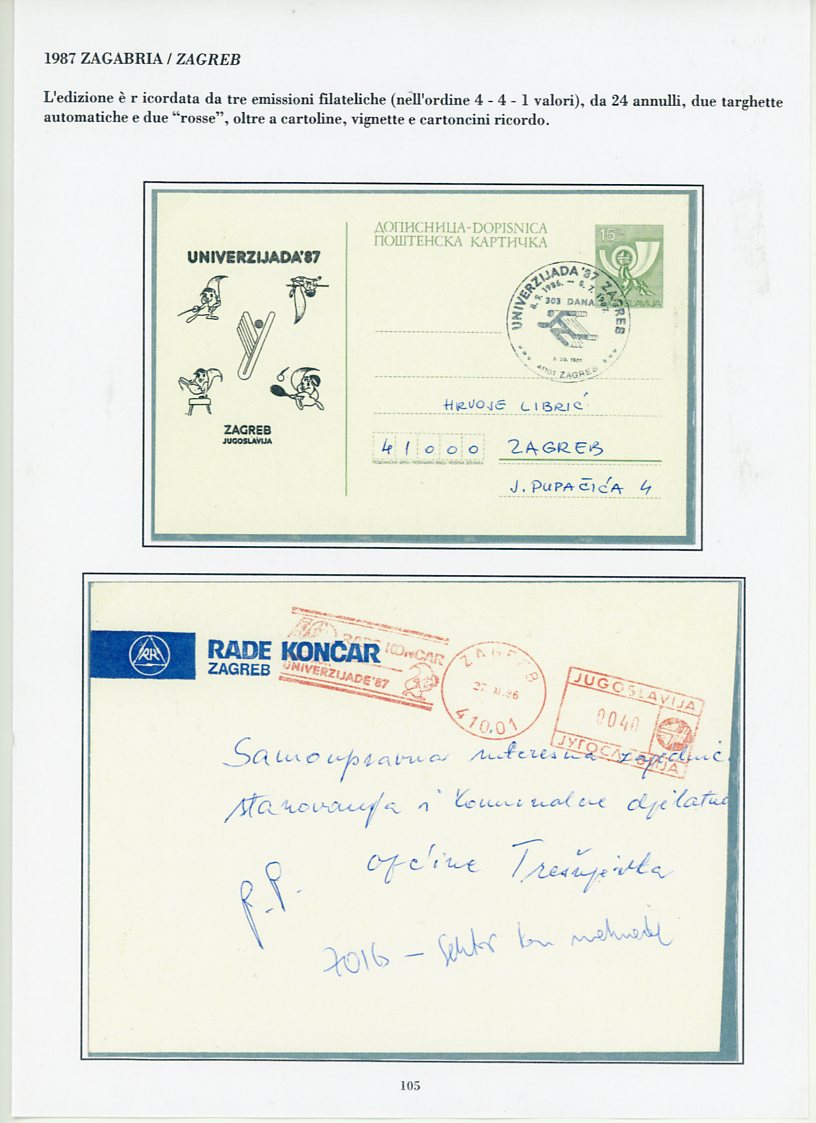 1987 ZAGABRIA / ZAGREB
L'edizione è r icordata da tre emissioni filateliche (nell'ordine 4 - 4 - 1 valori), da 24 annulli, due targhette
automatiche e due “rosse”, oltre a cartoline, vignette e cartoncini ricordo.
UNIVERZIJADA'87
ZAGREB
JUGOSLAVIJA
ДОПИСНИЦА-DOPISNICA
ПОШТЕНСКА КАРТИЧКА
15
UNIVERZIJADA'87 ZAGREB
8.9.1986. — 8.7.1987.
303 DANA
41101 ZAGREB
HRVOJE LIBRIĆ
41000 ZAGREB
J. PUPAČIĆA 4
RADE KONČAR
ZAGREB
RADE KONČAR
UNIVERZIJADE'87
ZAGREB
XI.86
41001
JUGOSLAVIJA
0040
ЈУГОСЛАВИЈА
Samoupravna interesna zajednic
stanovanja i komunalne djelatno
općine Trešnjevka
P.P.
7016 — Sektor
105